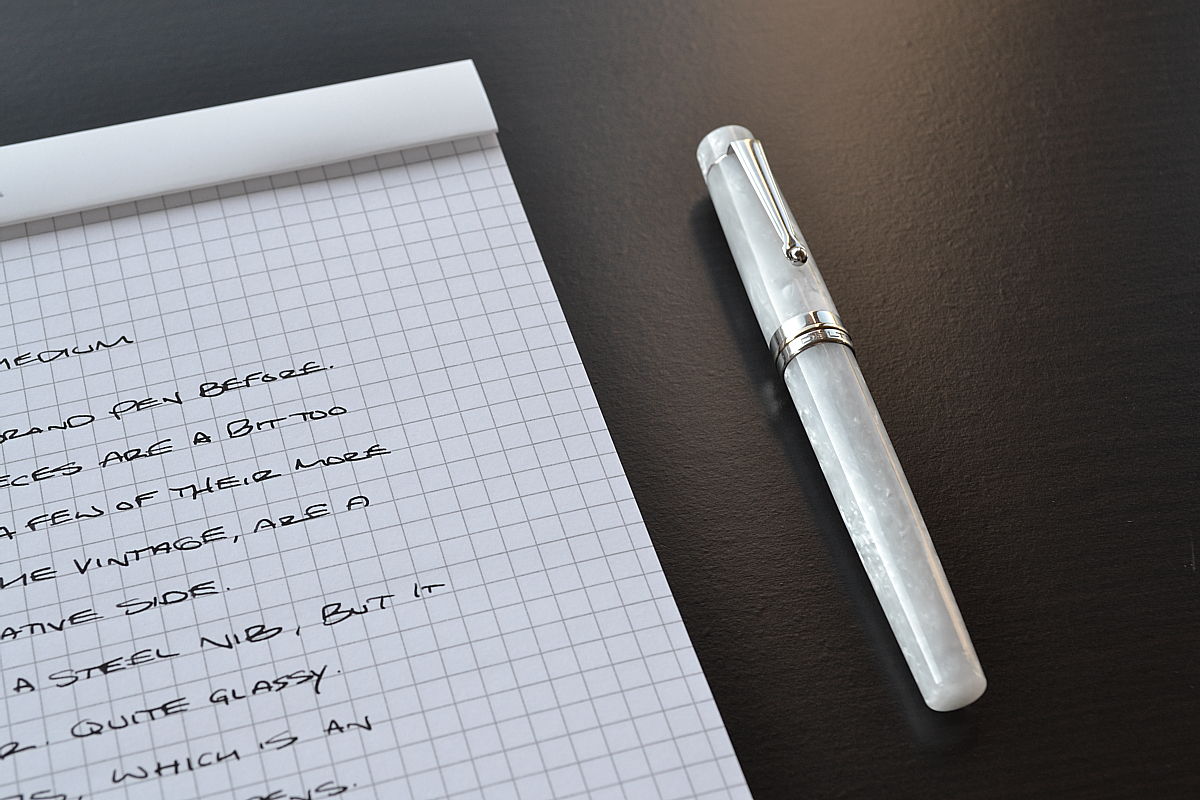 MEDIUM
BRAND PEN BEFORE.
ECES ARE A BIT TOO
A FEW OF THEIR MORE
HE VINTAGE, ARE A
ATIVE SIDE.
A STEEL NIB, BUT IT
R. QUITE GLASSY.
S, WHICH IS AN
ENS.